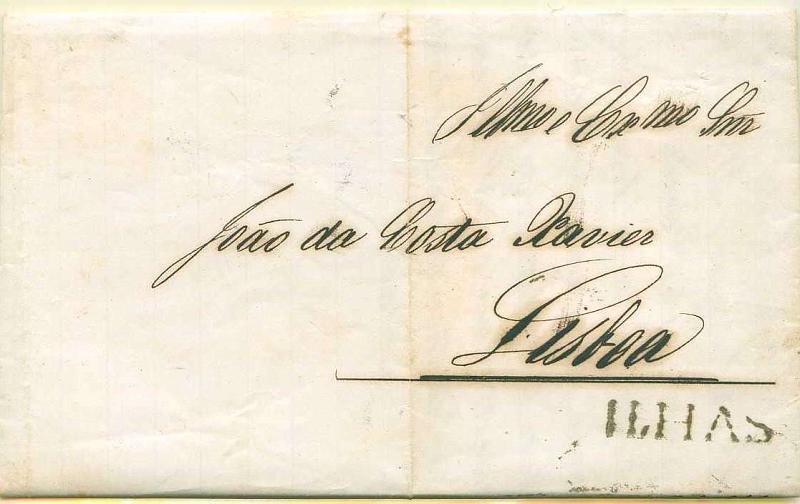 Illmo e Exmo Snr
João da Costa Xavier
Lisboa